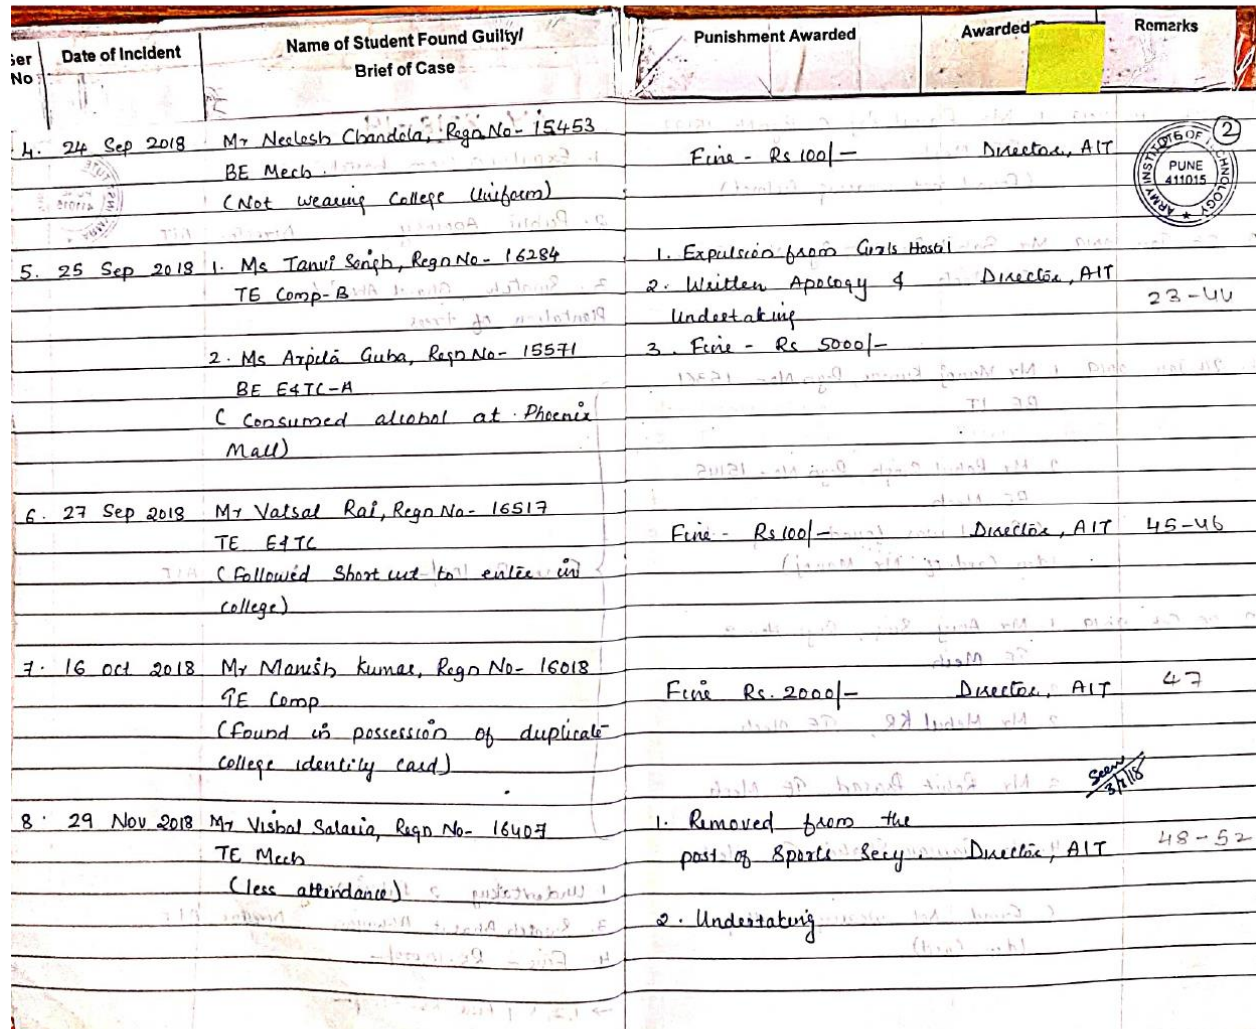 Ser No
Date of Incident
Name of Student Found Guilty/
Brief of Case
Punishment Awarded
Awarded
Remarks
2
ARMY INSTITUTE OF TECHNOLOGY
PUNE
411015
4. 24 Sep 2018 Mr Neelesh Chandola, Regn No- 15453
BE Mech.
(Not wearing College Uniform)
Fine - Rs 100/- Director, AIT
5. 25 Sep 2018 1. Ms Tanvi Singh, Regn No- 16284
TE Comp-B
2. Ms Arpita Guha, Regn No- 15571
BE E&TC-A
( Consumed alcohol at Phoenix
Mall)
1. Expulsion from Girls Hostel
2. Written Apology & Director, AIT
Undertaking
23-44
3. Fine - Rs 5000/-
6. 27 Sep 2018 Mr Vatsal Rai, Regn No- 16517
TE E&TC
(Followed Short cut to enter in
college)
Fine - Rs 100/- Director, AIT 45-46
7. 16 Oct 2018 Mr Manish Kumar, Regn No- 16018
TE Comp
(Found in possession of duplicate
college identity card)
Fine Rs. 2000/- Director, AIT 47
Seen
8. 29 Nov 2018 Mr Vishal Salaria, Regn No- 16407
TE Mech
(less attendance)
1. Removed from the
post of Sports Secy. Director, AIT 48-52
2. Undertaking